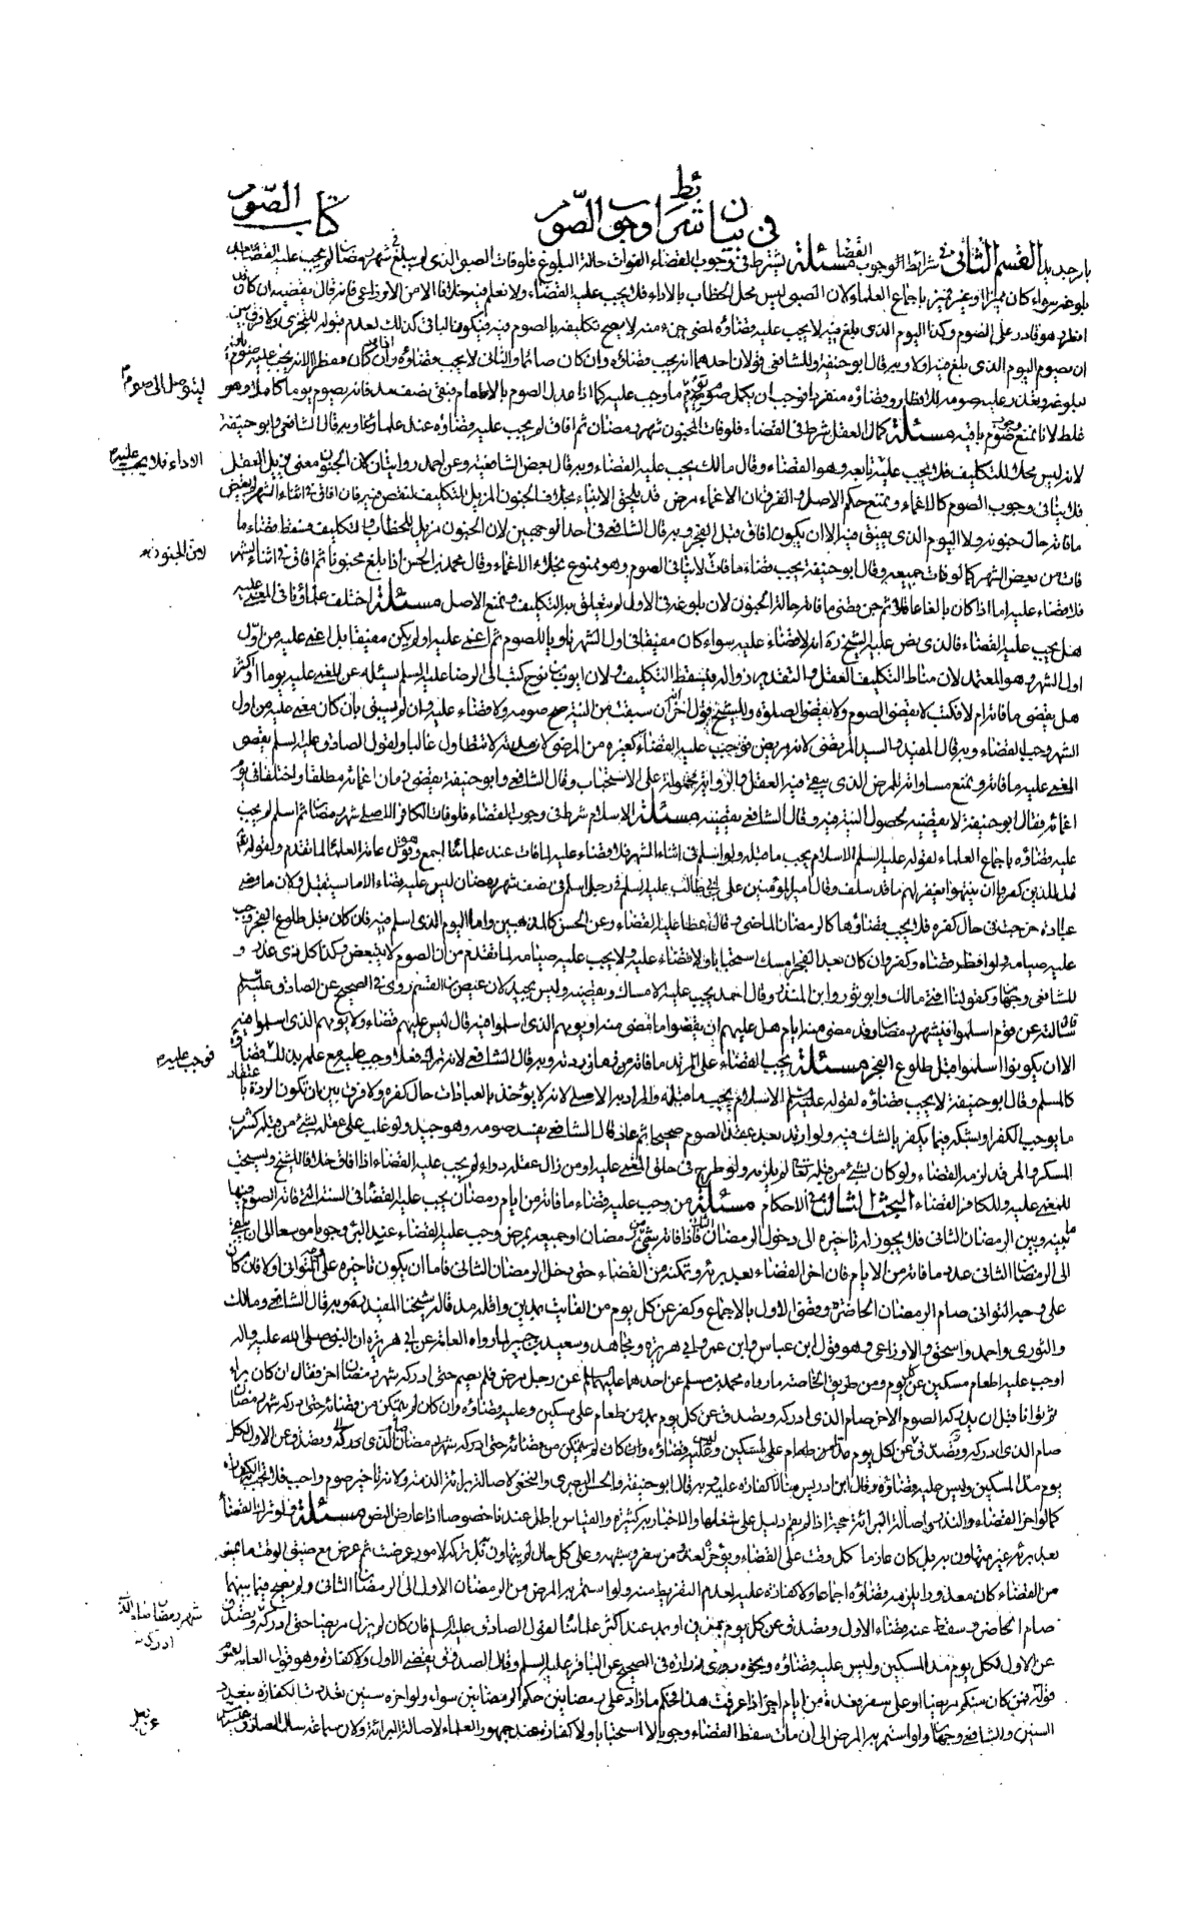 كتاب الصّوم
في بيان شرائط وجوب الصّوم
القسم الثاني في شرائط الوجوب القضاء مسئلة يشترط في وجوب القضاء الفوات حالة البلوغ فلو فات الصبي الذي لم يبلغ في شهر رمضان لم يجب عليه القضاء
بلوغه سواء كان مميزا او غير مميز باجماع العلماء ولان الصبي ليس محل الخطاب بالاداء فلا يجب عليه القضاء ولا نعلم فيه خلافا الا من الاوزاعي فانه قال يقضيه ان كان
افطره وهو قادر على الصوم وكذا اليوم الذي بلغ فيه لا يجب عليه قضاؤه لمضي جزء منه لا يصح تكليفه بالصوم فيه فيكون الباقي كذلك لعدم قبوله للتجزي ولا فرق بين
ان يصوم اليوم الذي بلغ فيه اولا وبه قال ابو حنيفة وللشافعي قولان احدهما انه يجب قضاؤه وان كان صائما والثاني لا يجب قضاؤه وان كان مفطرا لانه يجب عليه صوم
ببلوغه وتعذر عليه صومه للافطار وقضاؤه منفردا فوجب ان يكمل صوم يوم ما وجب عليه كما اذا عدل الصوم بالاطعام فبقي نصف مد فانه يصوم يوما كاملا وهو
ليتوصل الى صوم
غلط لانا نمنع وجوب صوم باقيه مسئلة كمال العقل شرط في القضاء فلو فات المجنون شهر رمضان ثم افاق لم يجب عليه قضاؤه عند علمائنا وبه قال الشافعي وابو حنيفة
لانه ليس محلا للتكليف فلا يجب عليه تابعه وهو القضاء وقال مالك يجب عليه القضاء وبه قال بعض الشافعية وعن احمد روايتان لان الجنون معنى يزيل العقل
الاداء فلا يجب عليه
فلا ينافي وجوب الصوم كالاغماء ونمنع حكم الاصل والفرق ان الاغماء مرض قد يلحق الانبياء بخلاف الجنون المزيل للتكليف لنقص فيه فان افاق في اثناء الشهر لم يقض
ما فاته حال جنونه ولا اليوم الذي يفيق فيه الا ان يكون افاق قبل الفجر وبه قال الشافعي في احد الوجهين لان الجنون مزيل للخطاب والتكليف فسقط قضاء ما
فات من بعض الشهر كما لو فات جميعه وقال ابو حنيفة يجب قضاء ما فات لا ينافي الصوم وهو ممنوع بخلاف الاغماء وقال محمد بن الحسن اذا بلغ مجنونا ثم افاق في اثناء الشهر
لان الجنون
فلا قضاء عليه اما اذا كان بالغا عاقلا ثم جن يقضي ما فاته حالة الجنون لان بلوغه في الاول لم يتعلق به التكليف ونمنع الاصل مسئلة اختلف علماؤنا في المغمى عليه
هل يجب عليه القضاء فالذي نص عليه الشيخ ره انه لا قضاء عليه سواء كان مفيقا في اول الشهر ناويا للصوم ثم اغمي عليه او لم يكن مفيقا بل اغمي عليه من اول
اول الشهر وهو المعتمد لان مناط التكليف العقل والتقدير زواله فيسقط التكليف ولان ايوب بن نوح كتب الى الرضا عليه السلم يسئله عن المغمى عليه يوما او اكثر
هل يقضي ما فاته ام لا فكتب لا يقضي الصوم ولا يقضي الصلوة وللشيخ قول اخر ان سبقت منه النية صح صومه ولا قضاء عليه وان لم يسبق بان كان مغمى عليه من اول
الشهر وجب القضاء وبه قال المفيد والسيد المرتضى لانه مريض فوجب عليه القضاء كغيره من المرضى لان مدته لا تتطاول غالبا ولقول الصادق عليه السلم يقضي
المغمى عليه ما فاته ونمنع مساواته للمرض الذي يبقى فيه العقل والرواية محمولة على الاستحباب وقال الشافعي وابو حنيفة يقضي زمان اغمائه مطلقا واختلفا في يوم
اغمائه فقال ابو حنيفة لا يقضيه لحصول النية فيه وقال الشافعي يقضيه مسئلة الاسلام شرط في وجوب القضاء فلو فات الكافر الاصلي شهر رمضان ثم اسلم لم يجب
عليه قضاؤه باجماع العلماء لقوله عليه السلم الاسلام يجب ما قبله ولو اسلم في اثناء الشهر فلا قضاء عليه لما فات عند علمائنا اجمع وهو قول عامة العلماء لما تقدم ولقوله تعالى
قل للذين كفروا ان ينتهوا يغفر لهم ما قد سلف وقال امير المؤمنين علي بن ابي طالب عليه السلم في رجل اسلم في نصف شهر رمضان ليس عليه قضاء الا ما يستقبل ولان ما مضى
عبادة خرجت في حال كفره فلا يجب قضاؤها كالرمضان الماضي وقال عطا عليه القضاء وعن الحسن كالمذهبين واما اليوم الذي اسلم فيه فان كان قبل طلوع الفجر وجب
عليه صيامه ولو افطر قضاه وكفر وان كان بعد الفجر امسك استحبابا ولا قضاء عليه ولا يجب عليه صيامه لما تقدم من ان الصوم لا يتبعض وكذا كل ذي عذر و
للشافعي وجهان وكقولنا افتى مالك وابو ثور وابن المنذر وقال احمد يجب عليه الامساك ويقضيه وليس بجيد لان عيص بن القسم روى في الصحيح عن الصادق عليه السلم
قال سألته عن قوم اسلموا في شهر رمضان وقد مضى منه ايام هل عليهم ان يقضوا ما مضى منه او يومهم الذي اسلموا فيه قال ليس عليهم قضاء ولا يومهم الذي اسلموا فيه
الا ان يكونوا اسلموا قبل طلوع الفجر مسئلة يجب القضاء على المرتد ما فاته زمن ردته وبه قال الشافعي لانه ترك فعلا وجب عليه مع علمه بذلك فقضاه
فوجب عليه
كالمسلم وقال ابو حنيفة لا يجب قضاؤه لقوله عليه السلم الاسلام يجب ما قبله والمراد به الاصلي لانه لا يؤخذ بالعبادات حال كفره ولا فرق بين ان تكون الردة باعتقاد
ما يوجب الكفر او بشكه فيما يكفر بالشك فيه ولو ارتد بعد عقد الصوم صحيحا ثم عاد قال الشافعي يفسد صومه وهو جيد ولو غلب على عقله بشيء من قبله كشرب
المسكر والمرقد لزمه القضاء ولو كان بشيء من قبله تعالى لم يلزمه ولو طرح في حلق المغمى عليه او من زال عقله دواء لم يجب عليه القضاء اذا افاق خلافا للشيخ ويستحب
للمغمى عليه وللكافر القضاء البحث الثالث في الاحكام مسئلة من وجب عليه قضاء ما فاته من ايام رمضان يجب عليه القضاء في السنة التي فاته الصوم فيها
ما بينه وبين الرمضان الثاني فلا يجوز له تاخيره الى دخول الرمضان الثاني فاذا فاته شيء من رمضان او جميعه بمرض وجب عليه القضاء عند البرء وجوبا موسعا الى ان يبقى
الى الرمضان الثاني عدد ما فاته من الايام فان اخر القضاء بعد برئه وتمكنه من القضاء حتى دخل الرمضان الثاني فاما ان يكون تاخيره على التواني اولا فان كان
على وجه التواني صام الرمضان الحاضر وقضى الاول بالاجماع وكفر عن كل يوم من الفايت بمدين واقله مد قاله شيخنا المفيد وبه قال الشافعي ومالك
والثوري واحمد واسحق والاوزاعي وهو قول ابن عباس وابن عمر وابي هريرة ومجاهد وسعيد بن جبير لما رواه العامة عن ابي هريرة ان النبي صلى الله عليه واله
اوجب عليه اطعام مسكين عن كل يوم ومن طريق الخاصة ما رواه محمد بن مسلم عن احدهما عليهما السلم عن رجل مرض فلم يصم حتى ادركه شهر رمضان اخر فقال ان كان براء
ثم توانا قبل ان يدركه الصوم الاخر صام الذي ادركه وتصدق عن كل يوم بمد من طعام على مسكين وعليه قضاؤه وان كان لم يتمكن من قضائه حتى ادركه شهر رمضان
صام الذي ادركه وتصدق عن كل يوم مدا من طعام على المسكين وليس عليه قضاؤه وان كان لم يتمكن من قضائه حتى ادركه شهر رمضان صام الذي ادركه وتصدق عن الاول لكل
يوم مدا لمسكين وليس عليه قضاؤه وقال ابن ادريس منا لا كفارة عليه وبه قال ابو حنيفة والحسن البصري والنخعي لاصالة برائة الذمة ولانه تاخير صوم واجب فلا تجب به الكفارة
كما لو اخر القضاء والنذر واصالة البرائة حجة اذا لم يقم دليل على شغلها والاخبار به كثيرة والقياس باطل عندنا خصوصا اذا عارض النص مسئلة ولو ترك القضاء
بعد برئه غير متهاون به بل كان عازما كل وقت على القضاء ويؤخر لعذر من سفر وشبهه وعلى كل حال لم يتهاون بل تركه لامور عرضت ثم عرض مع ضيق الوقت ما يمنع
من القضاء كان معذورا يلزمه قضاؤه اجماعا ولا كفارة عليه لعدم التفريط منه ولو استمر به المرض من الرمضان الاول الى الرمضان الثاني ولم يصح فيما بينهما
صام الحاضر وسقط عنه قضاء الاول وتصدق عن كل يوم بمدين او بمد عند اكثر علمائنا لقول الصادق عليه السلم فان كان لم يزل مريضا حتى ادركه وتصدق
شهر رمضان صام الذي ادركه
عن الاول لكل يوم مد المسكين وليس عليه قضاؤه ونحوه روى زرارة في الصحيح عن الباقر عليه السلم وقال الصدوق يقضي الاول ولا كفارة وهو قول العامة لعموم
قوله فمن كان منكم مريضا او على سفر فعدة من ايام اخر اذا عرفت هذا فحكم ما زاد على رمضانين حكم الرمضانين سواء ولو اخره سنين تعددت الكفارة بتعدد
السنين وللشافعي وجهان ولو استمر به المرض الى ان مات سقط القضاء وجوبا لا استحبابا ولا كفارة عند جمهور العلماء لاصالة البرائة ولان سماعة سال الصادق عليه السلم